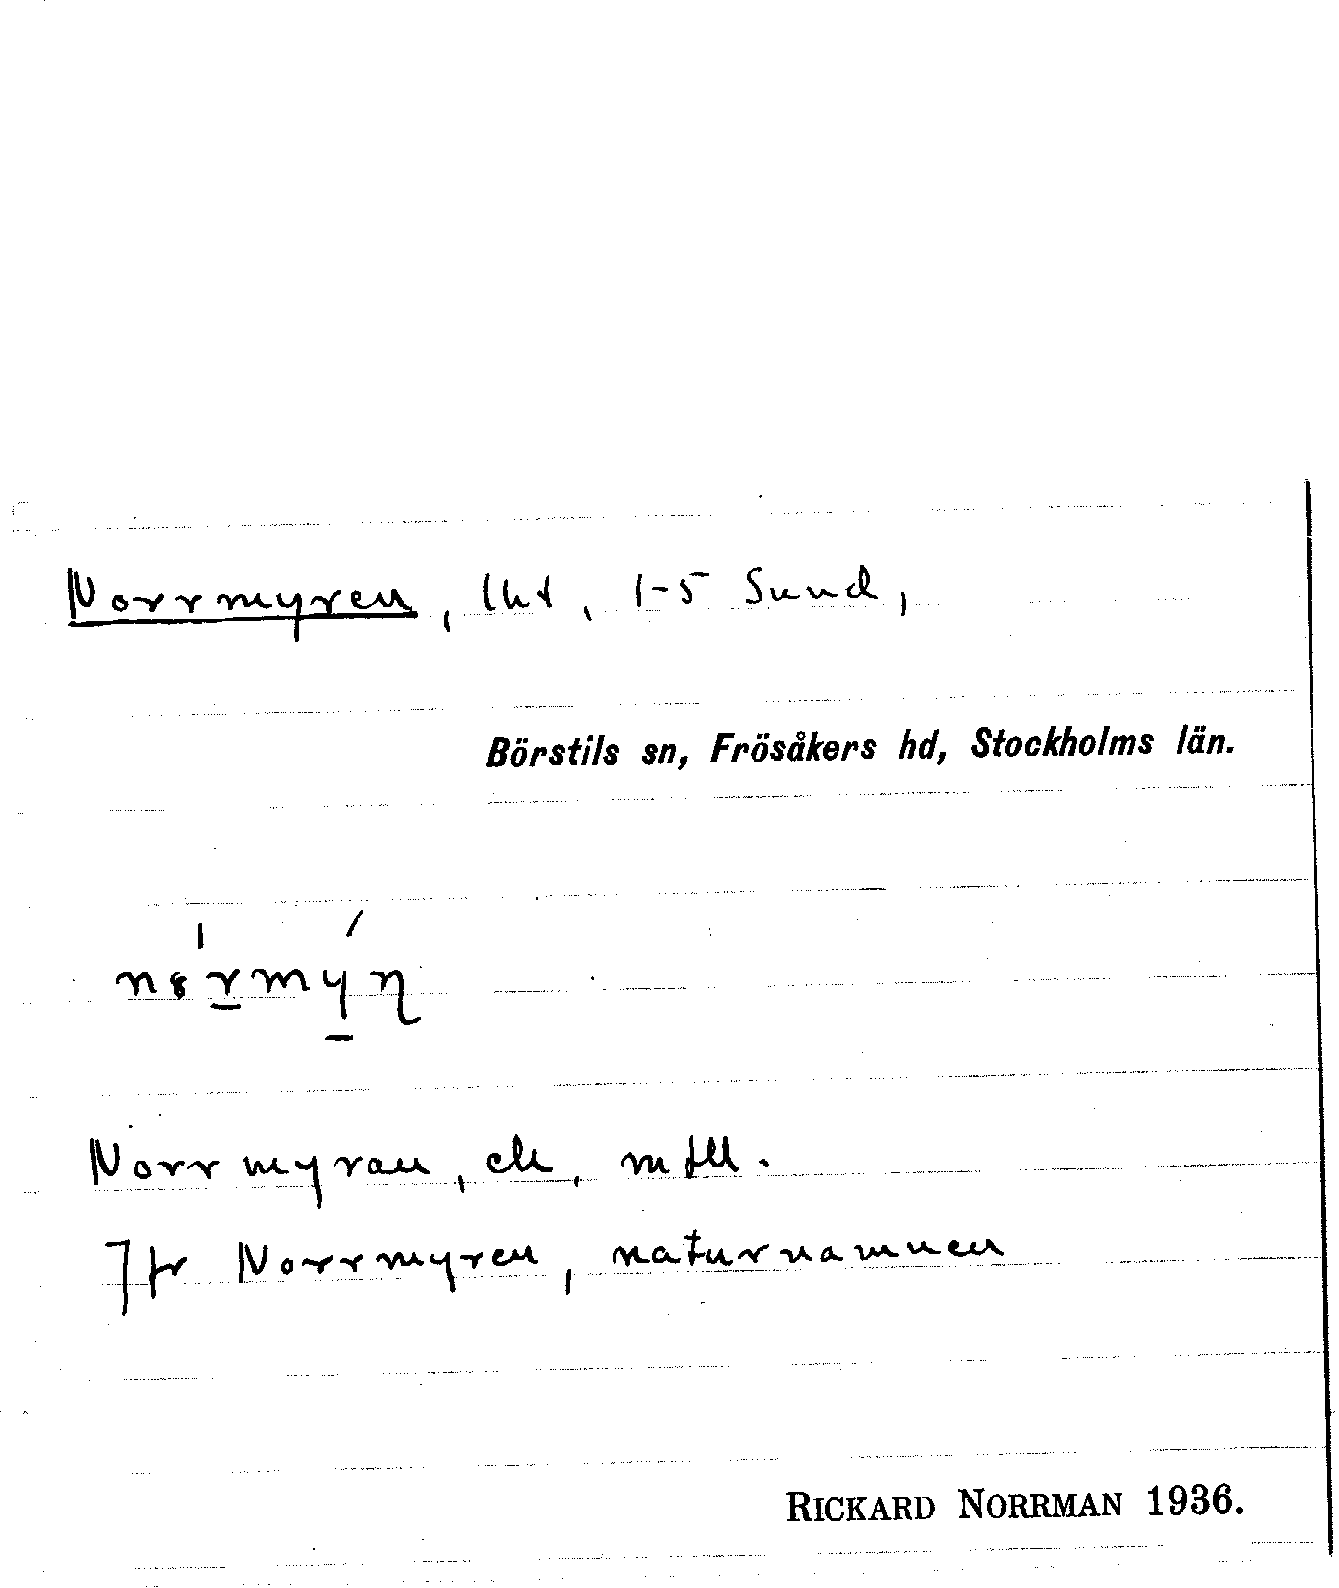 Norrmyren, lht, 1-5 Sund,
Börstils sn, Frösåkers hd, Stockholms län.
Norrmyran, ek, mtll.
Jfr Norrmyren, naturnamnen
RICKARD NORRMAN 1936.